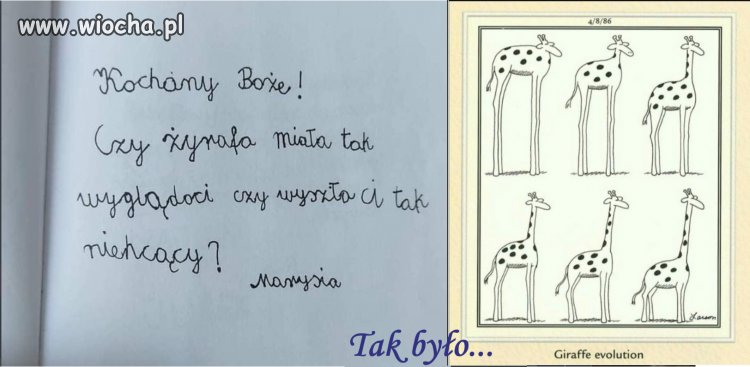 www.wiocha.pl
Kochany Boże!
Czy żyrafa miała tak
wyglądaci czy wyszła Ci tak
niehcący?
Marysia
4/8/86
Larson
Giraffe evolution
Tak było...